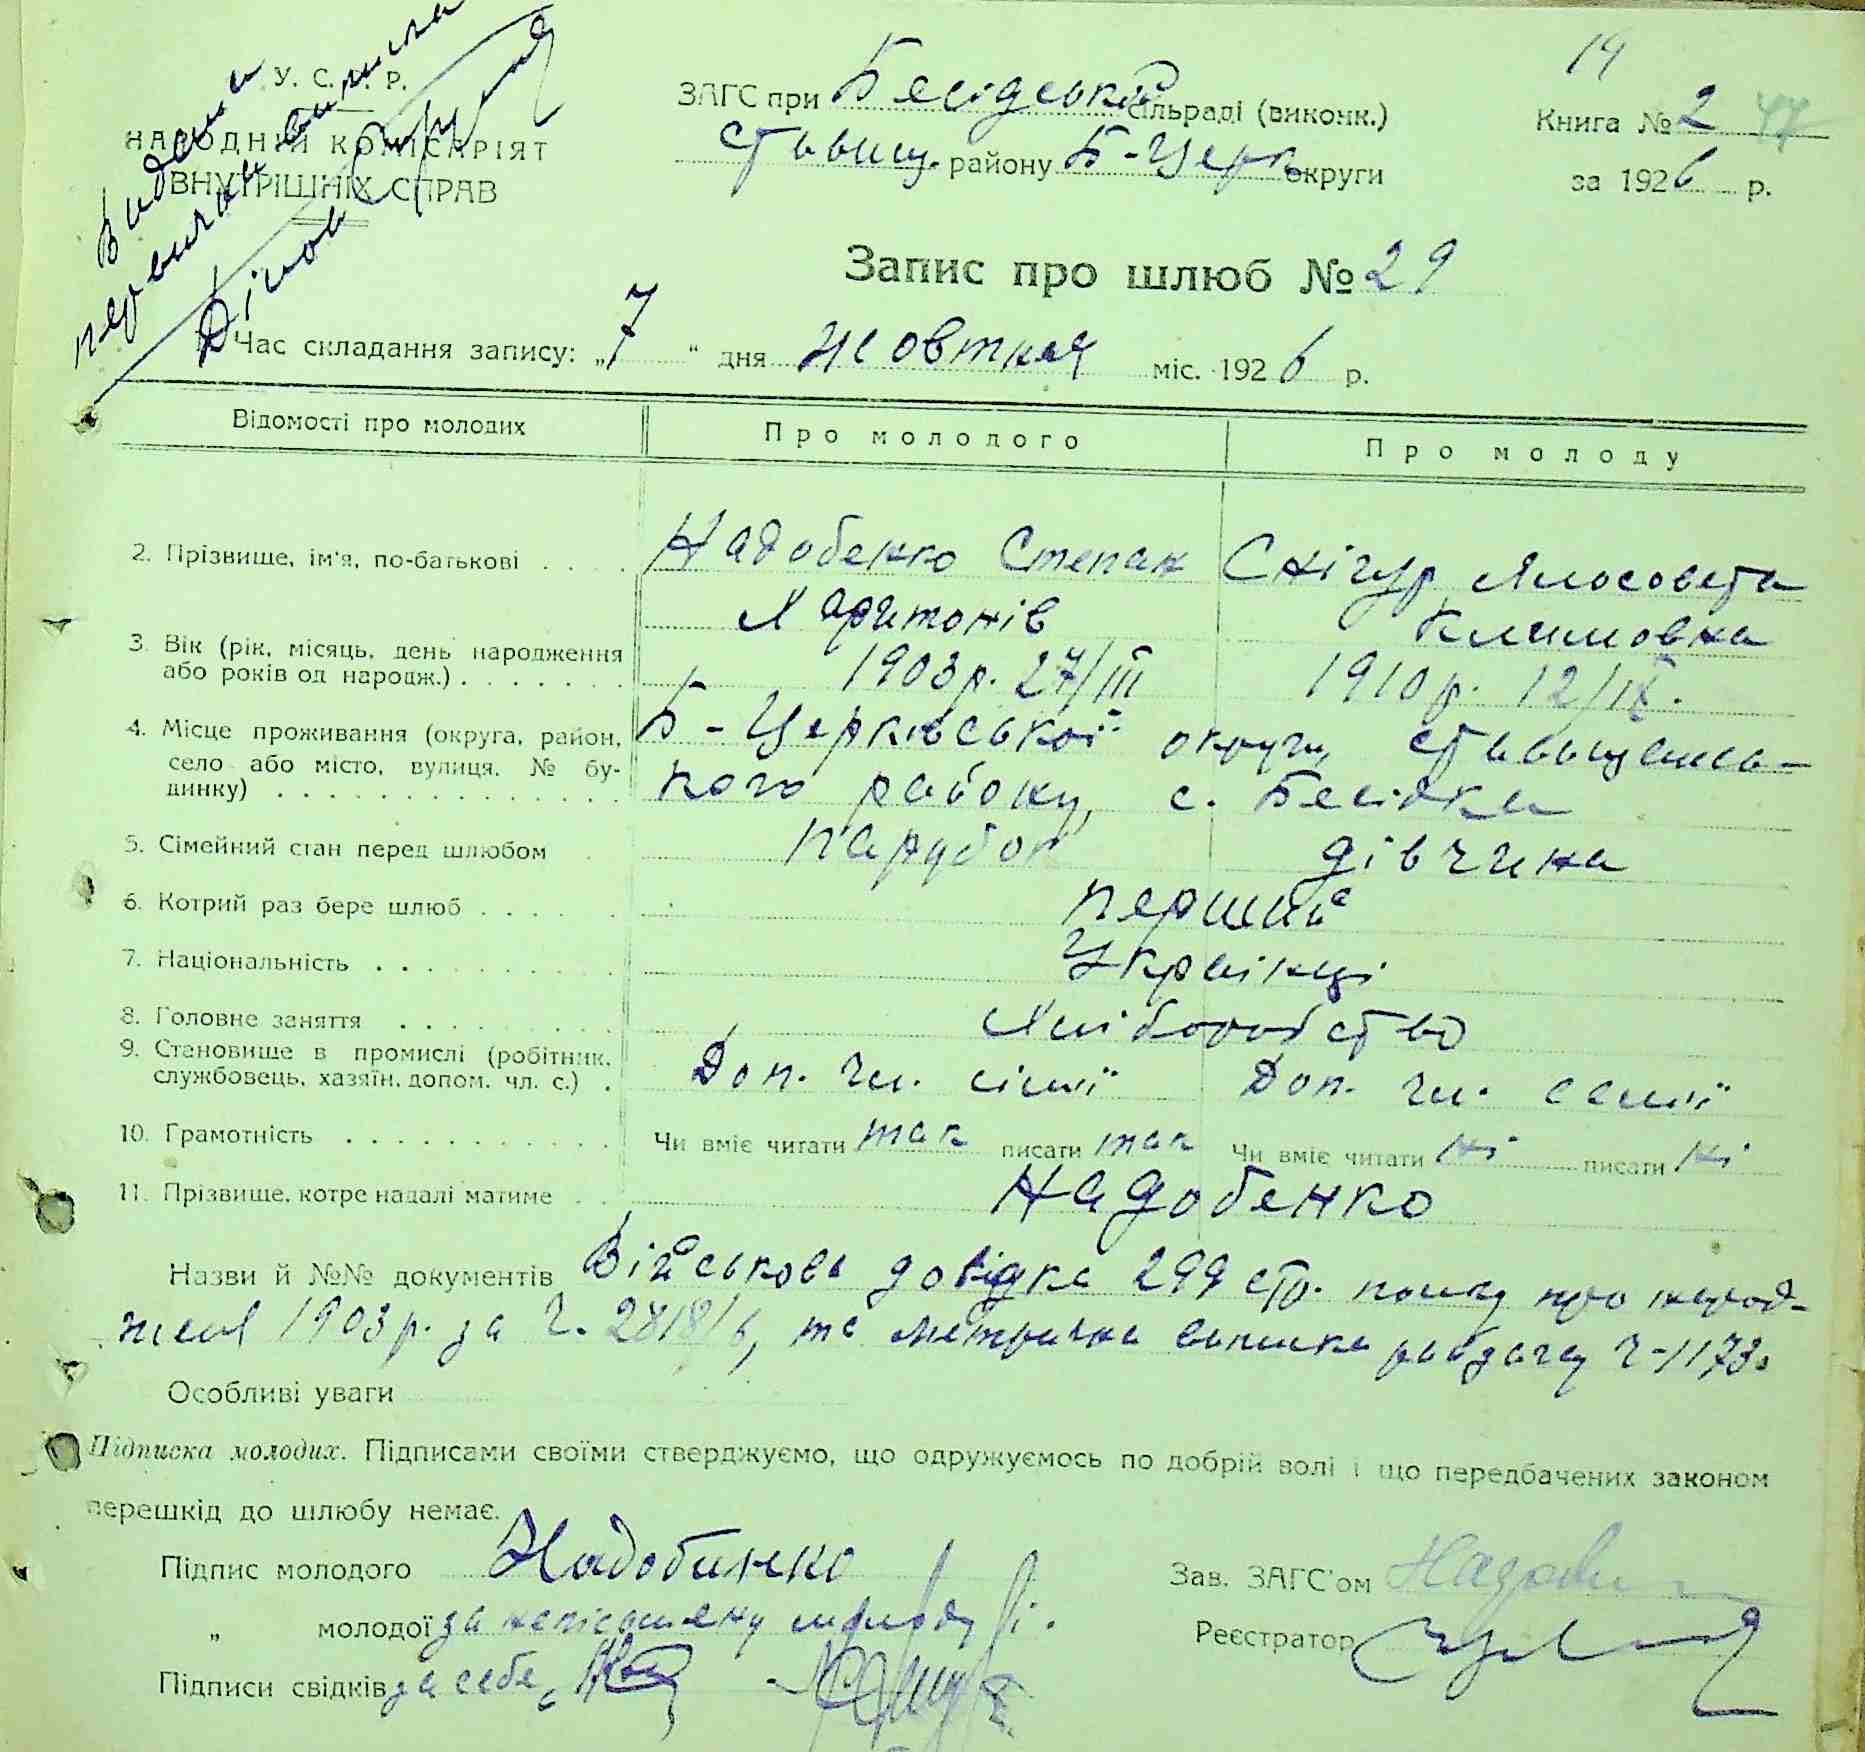 Видана
первична виписка
У. С. Р. Р.
НАРОДНІЙ КОМІСАРІЯТ
ВНУТРІШНІХ СПРАВ
ЗАГС при Бесідській сільраді (виконк.)
Ставищ. району Б-Церк округи
14
Книга № 2 47
за 1926 р.
Запис про шлюб № 29
1. Час складання запису: „7“ дня жовтня міс. 1926 р.
Відомості про молодих Про молодого Про молоду
2. Прізвище, ім'я, по-батькові Надобенко Степан Снігур Ялосовета
Харитонів Климовна
3. Вік (рік, місяць, день народження
або років од народж.) 1903 р. 27/III 1910 р. 12/IX.
4. Місце проживання (округа, район, Б-Церківської округи, Ставищансь-
село або місто, вулиця, № бу-
динку) кого району, с. Бесідка
5. Сімейний стан перед шлюбом парубок дівчина
6. Котрий раз бере шлюб перший
7. Національність Українці
8. Головне заняття Хліборобство
9. Становище в промислі (робітник,
службовець, хазяїн, допом. чл. с.) Доп. чл. сімї Доп. чл. семї
10. Грамотність Чи вміє читати так писати так Чи вміє читати ні писати ні
11. Прізвище, котре надалі матиме Надобенко
Назви й №№ документів Військова довідка 299 стр. полку про народ-
женя 1903 р. за Ч. 2818/6, та метрична виписка райзагсу Ч-1173.
Особливі уваги
Підписка молодих. Підписами своїми стверджуємо, що одружуємось по добрій волі і що передбачених законом
перешкід до шлюбу немає.
Підпис молодого Надобинко
Зав. ЗАГС'ом
„ молодої за неписьмену
Реєстратор
Підписи свідків за себе